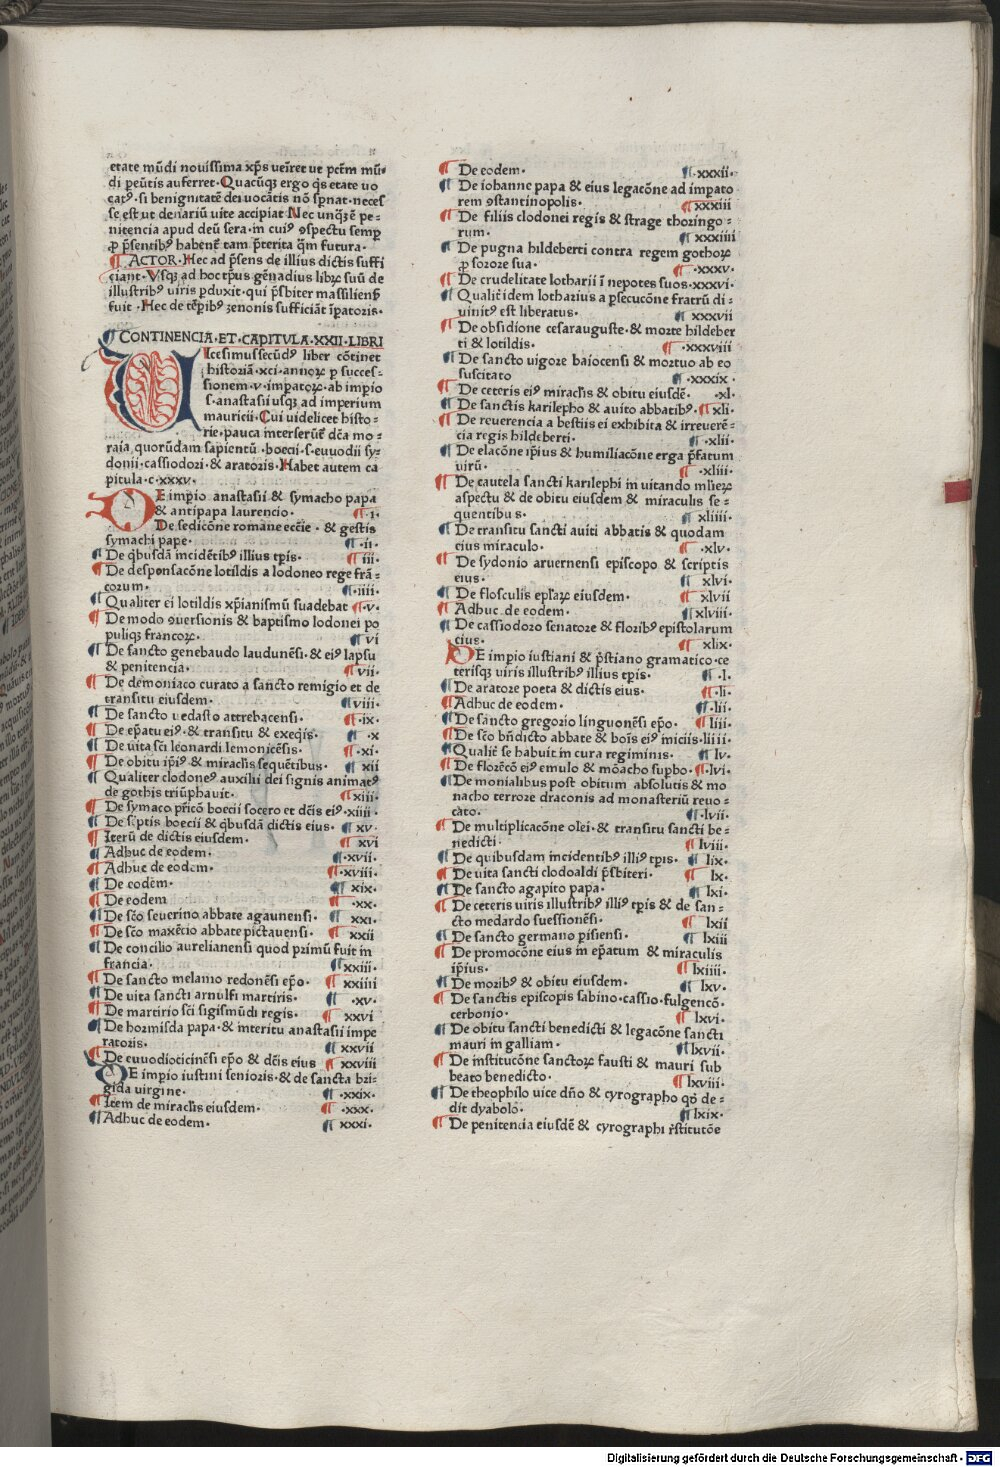 etate mũdi nouissima xp̃s uẽiret ut pctm̃ mũ-
di pẽutis auferret· Quacũqꝫ ergo q̃s etate uo
catꝰ· si benignitatẽ dei uocãtis nõ spnat· neces
se est ut denariũ uite accipiat· Nec unqꝫ̃ẽ pe-
nitencia apud deũ sera· in cuiꝰ ꝯspectu semp
ꝓ p̃sentibꝰ habenẽ tam p̃terita q̃m futura·
ACTOR· Hec ad p̃sens de illius dictis suffi
ciant· Vsqꝫ ad hoc tp̃us gẽnadius librꝫ suũ de
illustribꝰ uiris ꝑduxit· qui p̃sbiter massiliens̃
fuit· Hec de tẽpibꝰ zenonis sufficiãt ĩꝑatoris·
CONTINENCIA·ET·CAPITVLA·XXII·LIBRI
Vicesimussecũdꝰ liber cõtinet
historiã ·xci· annoꝝ ꝑ succes-
sionem ·v· impatoꝝ· ab impio
·s· anastasii usqꝫ ad imperium
mauricii· Cui uidelicet histo-
rie· pauca interserũt̃ dc̃a mo-
ralia quorũdam sapientũ· boecii ·s· euuodii sy-
donii· cassiodori· & aratoris· Habet autem ca
pitula ·c·xxxv·
DE imp̃io anastasii & symacho papa
& antipapa laurencio· ·i·
De sedicõne romane ecc̃ie· & gestis
symachi pape· ·ii·
De q̃busdã incidẽtibꝰ illius tp̃is· iii·
De desponsacõne lotildis a lodoneo rege frã-
corum· ·iiii·
Qualiter ei lotildis xp̃ianismũ suadebat ·v·
De modo ꝯuersionis & baptismo lodonei po
puliqꝫ francoꝝ· vi
De sancto genebaudo laudunẽsi· & eiꝰ lapsu
& penitencia· vii·
De demoniaco curato a sancto remigio et de
transitu eiusdem· viii·
De sancto uedasto attrebacensi· ·ix·
De ep̃atu eiꝰ· & transitu & exeq̃is· ·x
De uita sc̃i leonardi lemonicẽsis· ·xi·
De obitu ip̃iꝰ & miraclis sequẽtibus· xii
Qualiter clodoneꝰ auxilii dei signis animatꝰ
de gothis triũphauit· xiii·
De symaco p̃ricõ boecii socero et dc̃is eiꝰ·xiiii·
De sc̃ptis boecii & q̃busdã dictis eius· xv·
Iterũ de dictis eiusdem· xvi
Adhuc de eodem· ·xvii·
Adhuc de eodem· ·xviii·
De eodẽm· xix·
De eodem ·xx·
De sc̃o seuerino abbate agaunensi· xxi·
De sc̃o maxẽtio abbate pictauensi· xxii
De concilio aurelianensi quod primũ fuit in
francia· xxiii·
De sancto melanio redonẽsi ep̃o· xxiiii
De uita sancti arnulfi martiris· ·xv·
De martirio sc̃i sigismũdi regis· xxvi
De hormisda papa· & interitu anastasii impe
ratoris· xxvii
De euuodioticinẽsi ep̃o & dc̃is eius xxviii
DE imp̃io iustini senioris· & de sancta bri-
gida uirgine· ·xxix·
Item de miraclis eiusdem· ·xxx·
Adhuc de eodem· xxxi·
De eodem· ·xxxii·
De iohanne papa & eius legacõne ad impato
rem ꝯstantinopolis· xxxiii
De filiis clodonei regis & strage thoringo-
rum· xxxiiii
De pugna hildeberti contra regem gothoꝝ
ꝓ sorore sua· ·xxxv·
De crudelitate lotharii ĩ nepotes suos·xxxvi·
Qualit̃ idem lotharius a ꝑsecucõne fratrũ di-
uinitꝰ est liberatus· xxxvii
De obsidione cesarauguste· & morte hildeber
ti & lotildis· ·xxxviii
De sancto uigore baiocensi & mortuo ab eo
suscitato ·xxxix·
De ceteris eiꝰ miraclis & obitu eiusdẽ· ·xl·
De sanctis karilepho & auito abbatibꝰ· xli·
De reuerencia a bestiis ei exhibita & irreuerẽ-
cia regis hildeberti· ·xlii·
De elacõne ip̃ius & humiliacõne erga p̃fatum
uirũ· ·xliii·
De cautela sancti karilephi in uitando mlieꝝ
aspectu & de obitu eiusdem & miraculis se-
quentibus· xliiii·
De transitu sancti auiti abbatis & quodam
eius miraculo· ·xlv·
De sydonio aruernensi episcopo & scriptis
eius· xlvi·
De flosculis epl̃aꝝ eiusdem· xlvii
Adhuc de eodem· xlviii·
De cassiodoro senatore & floribꝰ epistolarum
eius· xlix·
DE impio iustiani & p̃stiano gramatico· ce
terisqꝫ uiris illustribꝰ illius tp̃is· ·l·
De aratore poeta & dictis eius· ·li·
Adhuc de eodem· ·lii·
De sancto gregorio linguonẽsi ep̃o· liii·
De sc̃o bñdicto abbate & bõis eiꝰ iniciis·liiii·
Qualit̃ se habuit in cura regiminis· lv·
De florẽcõ eiꝰ emulo & mõacho supbo· ·lvi·
De monialibus post obitum absolutis & mo
nacho terrore draconis ad monasteriũ reuo-
cato· ·lvii·
De multiplicacõne olei· & transitu sancti be-
nedicti· lviii·
De quibusdam incidentibꝰ illiꝰ tp̃is· lix·
De uita sancti clodoaldi p̃sbiteri· lx·
De sancto agapito papa· lxi·
De ceteris uiris illustribꝰ illiꝰ tp̃is & de san-
cto medardo suessionẽsi· lxii
De sancto germano p̃isiensi· lxiii
De promocõne eius in ep̃atum & miraculis
ip̃ius· lxiiii·
De moribꝰ & obitu eiusdem· lxv·
De sanctis episcopis sabino· cassio· fulgencõ·
cerbonio· lxvi·
De obitu sancti benedicti & legacõne sancti
mauri in galliam· lxvii·
De institucõne sanctoꝝ fausti & mauri sub
beato benedicto· lxviii·
De theophilo uice dño & cyrographo qõ de-
dit dyabolo· lxix·
De penitencia eiusdẽ & cyrographi r̃stitucõe
Digitalisierung gefördert durch die Deutsche Forschungsgemeinschaft - DFG